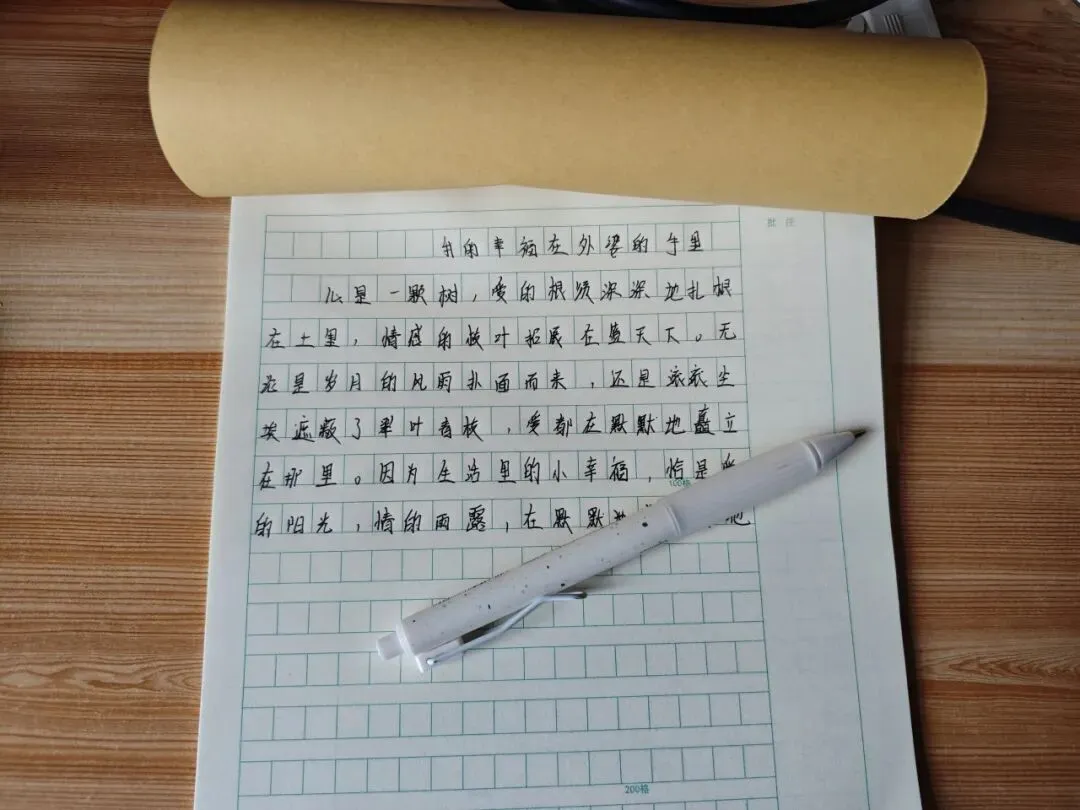 批 注
我的幸福在外婆的手里
心是一颗树，爱的根须深深地扎根
在土里，情感的枝叶拓展在蓝天下。无
论是岁月的风雨扑面而来，还是滚滚尘
埃遮蔽了翠叶青枝，爱都在默默地矗立
在那里。因为生活里的小幸福，恰是
100格
的阳光，情的雨露，在默默
200格